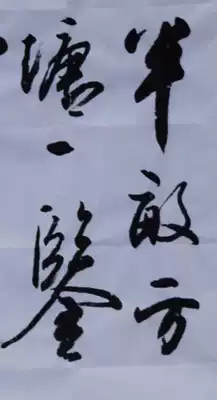 半畝方
塘一鑒